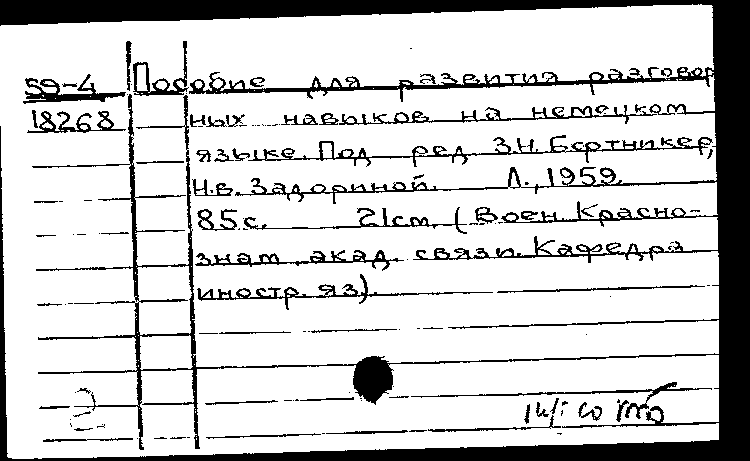 59-4 Пособие для развития разговор
18268 ных навыков на немецком
языке. Под ред. З.Н. Бертникер,
Н.В. Задориной. Л., 1959.
85с. 21см. (Воен. Красно-
знам. акад. связи. Кафедра
иностр. яз).